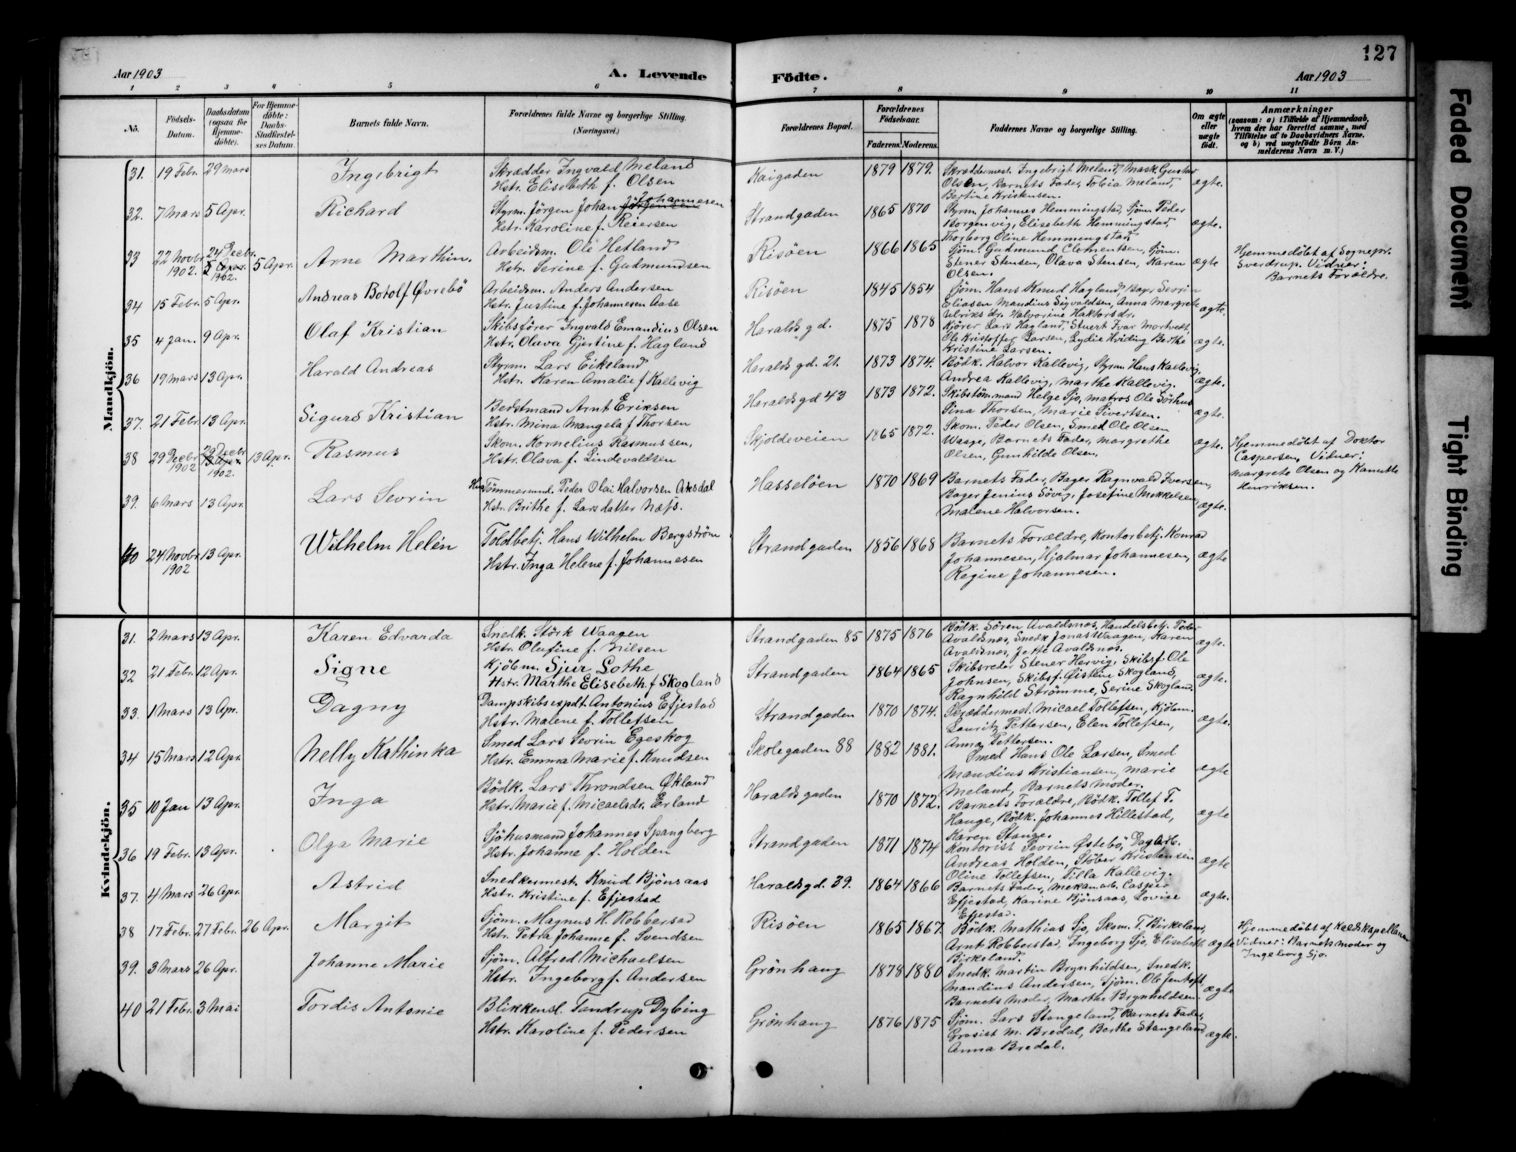 127
Aar 1903
A. Levende
Födte.
Aar 1903
1 2 3 4 5 6 7 8 9 10 11
No.
Födsels-
Datum.
Daabsdatum
(ogsaa for
Hjemme-
döbte).
For Hjemme-
döbte:
Daabs-
Stadfæstel-
ses Datum.
Barnets fulde Navn.
Forældrenes fulde Navne og borgerlige Stilling.
(Næringsvei.)
Forældrenes Bopæl.
Forældrenes
Födselsaar.
Faderens. Moderens.
Faddernes Navne og borgerlige Stilling.
Om ægte
eller
uægte
födt.
Anmærkninger
(saasom: a) i Tilfælde af Hjemmedaab,
hvem der har forrettet samme, med
Tilföielse af to Daabsvidners Navne.
og b) ved uægtefödte Börn An-
melderens Navn m. V.)
Mandkjön.
31. 19 Febr. 29 Mars Ingebrigt
Skrædder Ingvald Meland
Hstr. Elisebeth f. Olsen
Kaigaden 1879 1879.
Skræddermest. Ingebrigt Meland, Mask. Gustav
Olsen, Barnets Fader, Tobia Meland,
Bertine Kristensen.
ægte.
32. 7 Mars 5 Apr. Richard
Styrm. Jörgen Johan Jörgensen Johannesen
Hstr. Karoline f. Reiersen
Strandgaden 1865 1870
Styrm. Johannes Hemmingstad, Sjöm. Peder
Borgenvig, Elisebeth Hemmingstad,
Thorborg Oline Hemmingstad,
ægte.
33 22 Novbr. 1902. 24 Decbr. 5 Apr. 1902. 5 Apr. Arne Marthin.
Arbeidsm. Ole Hetland
Hstr. Serine f. Gudmundsen
Risöen 1866 1865
Sjöm. Gudmund Clementsen, Sjöm.
Stener Stensen, Olava Stensen, Karen
Olsen.
ægte
Hjemmedöbt af Sognepr.
Sverdrup. Vidner:
Barnets Forældre.
34 15 Febr. 5 Apr. Andreas Botolf Øvrebö
Arbeidsm. Anders Andersen
Hstr. Justine f. Johannesen Aase
Risöen 1845 1854
Sjöm. Hans Knud Hagland, Bagr Sevrin
Eliasen Mandius Sigvaldsen, Anna Margrete
Ulriks dr. Valborine Haktorsdr.
ægte.
35 4 Jan. 9 Apr. Olaf Kristian
Skibsförer Ingvald Emandius Olsen
Hstr. Olava Gjertine f. Hagland
Haralds gd. 1875 1878
Kjörer Lars Hagland, Stuert Ivar Mortvedt,
Ole Kristoffer Larsen, Lydie Hviding Berthe
Kristine Larsen.
ægte.
36 19 Mars 13 Apr. Harald Andreas
Styrm. Lars Eikeland
Hstr. Karen Amalie f Kallevig
Haralds gd. 21. 1873 1874.
Bödk. Halvor Kallevig, Styrm. Hans Kallevig,
Andrea Kallevig, Marthe Kallevig.
ægte.
37. 21 Febr. 13 Apr. Sigurd Kristian
Bedstmand Arnt Eriksen
Hstr. Mina Mangela f Thorsen
Haraldsgd 43 1873 1872.
Skibstömmand Helge Sjo, Matros Ole Sörhus
Sina Thorsen, Marie Sivertsen.
ægte.
38 29 Decbr. 1902 29 Decbr. 13 Apr. 1902. 13 Apr. Rasmus
Skom. Kornelius Rasmussen,
Hstr. Olava f. Lindevaldsen
Skjoldeveien 1865 1872.
Skom. Peder Olsen, Smed Ole Olsen
Waage, Barnets Fader, Margrethe
Olsen, Gunhilde Olsen.
ægte.
Hjemmedöbt af Doktor
Caspersen, Vidner:
Margrete Olsen og Hanette
Henriksen.
39. 6 Mars 13 Apr. Lars Sevrin
Tömmermd. Peder Olai Halvorsen Aksdal
Hstr. Brithe f. Larsdatter Næss.
Hasseløen 1870 1869
Barnets Fader, Bager Ragnvald Iversen,
Bager Jenius Sövig, Josefine Mekkelsen,
Malene Halvorsen.
ægte.
40 24 Novbr. 1902 13 Apr. Wilhelm Helén
Toldbetj. Hans Wilhelm Bergström
Hstr. Inga Helene f. Johannesen
Strandgaden 1856 1868
Barnets Forældre, Kontorbetj. Konrad
Johannesen, Hjalmar Johannesen,
Regine Johannesen.
ægte
Kvindekjön.
31. 2 Mars 13 Apr. Karen Edvarda
Snedk. Störk Waagen
Hstr. Olufine f. Nilsen
Strandgaden 85 1875 1876
Bödk. Sören Avaldsnæs, Handelsbetj. Peter
Avaldsnæs, Snedk Jonas Waagen, Karen
Avaldsnæs, Avaldsnæs.
ægte.
32 21 Febr. 12 Apr. Signe
Kjöbm. Sjur Lothe
Hstr. Marthe Elisebeth f Skogland
Strandgaden 1864 1865
Skibsreder Stener Hervig, Skibsf. Ole
Johnsen, Skibsf. Øistein Skogland,
Ragnhild Strömme, Serine Skogland.
ægte.
33. 1 Mars 13 Apr. Dagny
Dampskibsexpdt. Antonius Efjestad
Hstr. Malene f. Tollefsen
Strandgaden 1870 1874.
Skræddermest. Micael Tollefsen, Kjöbm.
Lauritz Pettersen, Elen Tollefsen,
Anna Pettersen.
ægte.
34 15 Mars 12 Apr. Nelly Kathinka
Smed Lars Sevrin Egeskog
Hstr. Emma Marie f. Knudsen
Skolegaden 88 1882 1881.
Smed Hans Ole Larsen, Smed
Mandius Kristiansen, Marie
Meland, Barnets Moder.
ægte
35 10 Jan 13 Apr. Inga
Bödk. Lars Throndsen Økland
Hstr. Marie f. Micaelsdr. Erland
Haralds gaden 1870 1872.
Barnets Forældre, Bödk. Tollef T.
Hauge, Bödk. Johannes Hillestad,
Karen Stange.
ægte
36 19 Febr. 13 Apr. Olga Marie
Sjöhusmand Johannes Spangberg
Hstr. Johanne f. Holden
Strandgaden 1871 1874
Kontorist Sevrin Østebö, Dag Arb.
Andreas Holden, Stöber Kristensen
Oline Tollefsen, Tilla Kallevig.
ægte
37. 4 Mars 26 Apr. Astrid
Snedkermest. Knud Bjönsaas
Hstr. Kristine f. Efjestad
Haraldsgd. 39. 1864 1866
Barnets Fader, Mekan. arb. Casper
Efjestad, Karine Bjönsaas, Lovise
Efjestad.
ægte.
38 17 Febr. 27 Febr. 26 Apr. Margit
Sjöm. Magnus H. Robberstad
Hstr. Petra Johanne f. Svendsen
Risöen 1865 1867.
Bödk. Mathias Sjo, Skom. T. Birkeland,
Arnt Robberstad, Ingeborg Sjo, Elisebeth
Birkeland.
ægte
Hjemmedöbt af Res. Kapellanen
Vidner: Barnets Moder og
Ingeborg Sjo.
39. 3 Mars 26 Apr. Johanne Marie
Sjöm. Alfred Michaelsen
Hstr. Ingeborg f. Andersen
Grönhaug 1878 1880
Snedk. Martin Brynhildsen, Snedk.
Mandius Andersen, Sjöm. Ole Jentoft
Barnets Moder, Marthe Brynhildsen.
ægte
40 21 Febr. 3 Mai Tordis Antonie
Blikkensl. Tandrup Dybing
Hstr. Karoline f. Pedersen
Grönhaug 1876 1875
Sjöm. Lars Stangeland, Barnets Fader,
Grosist M. Bredal, Berthe Stangeland
Anna Bredal.
ægte.
Faded Document
Tight Binding